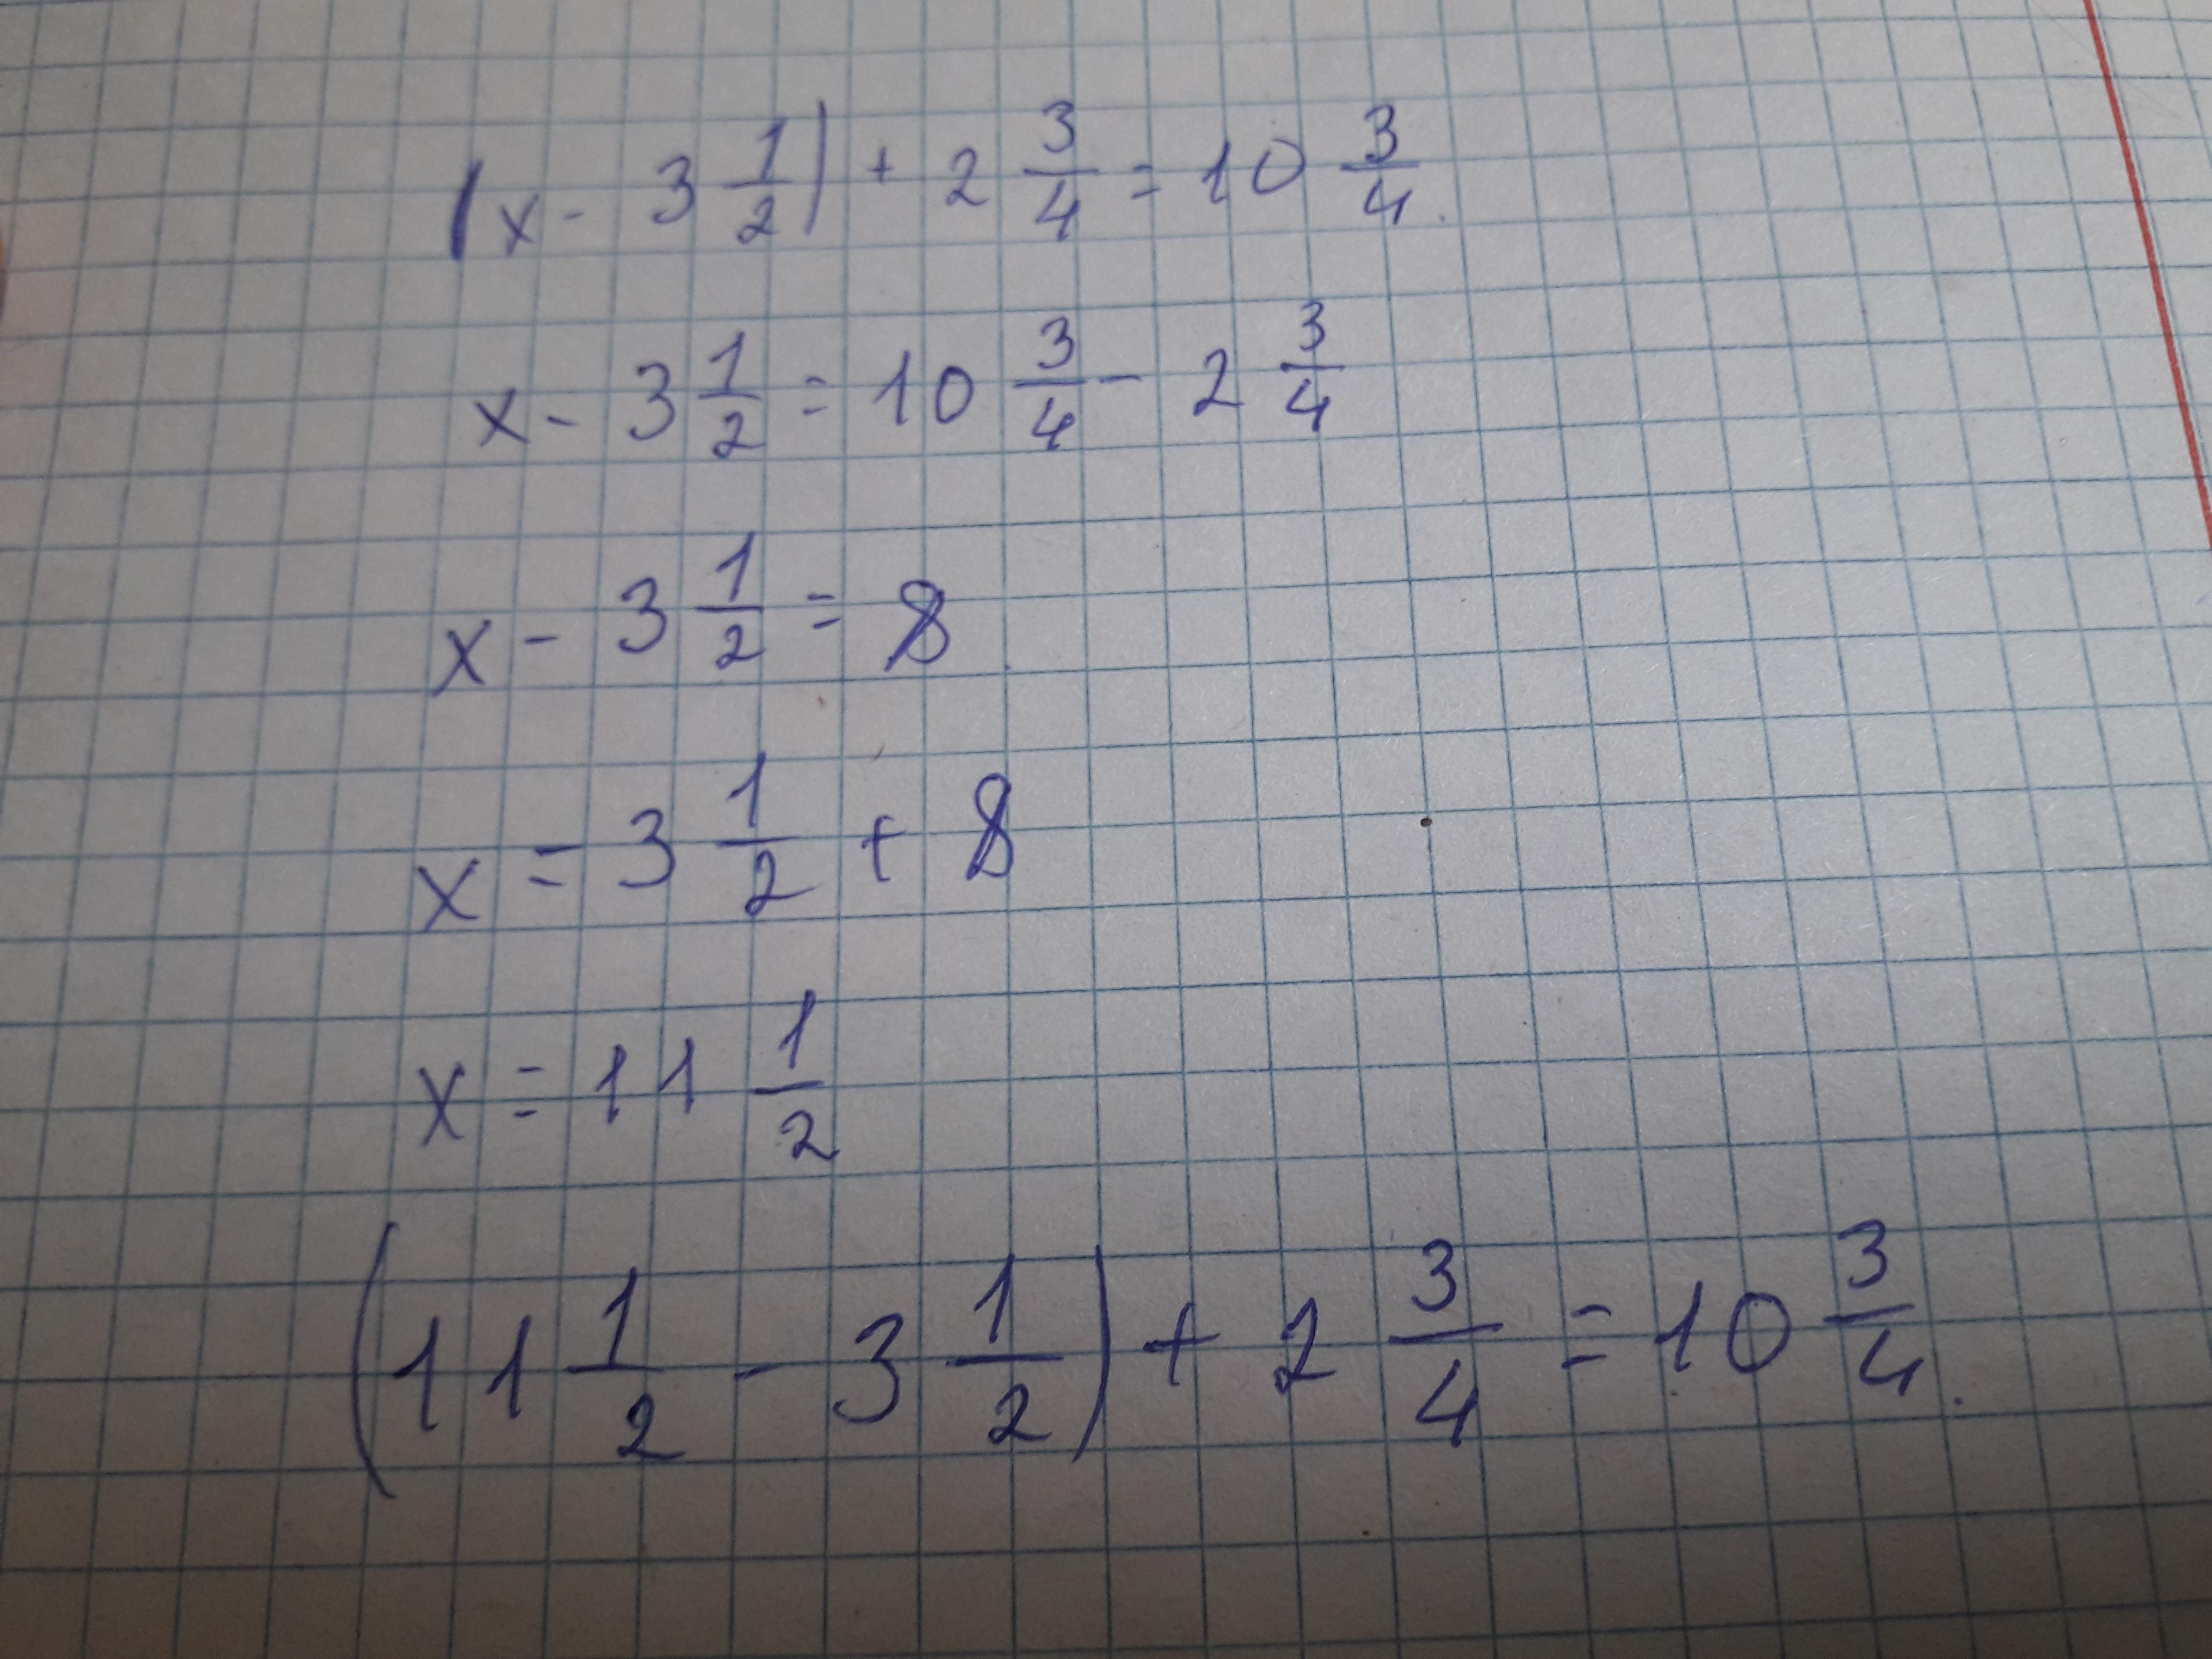 (x - 3 1/2) + 2 3/4 = 10 3/4.
x - 3 1/2 = 10 3/4 - 2 3/4
x - 3 1/2 = 8.
x = 3 1/2 + 8
x = 11 1/2
(11 1/2 - 3 1/2) + 2 3/4 = 10 3/4.